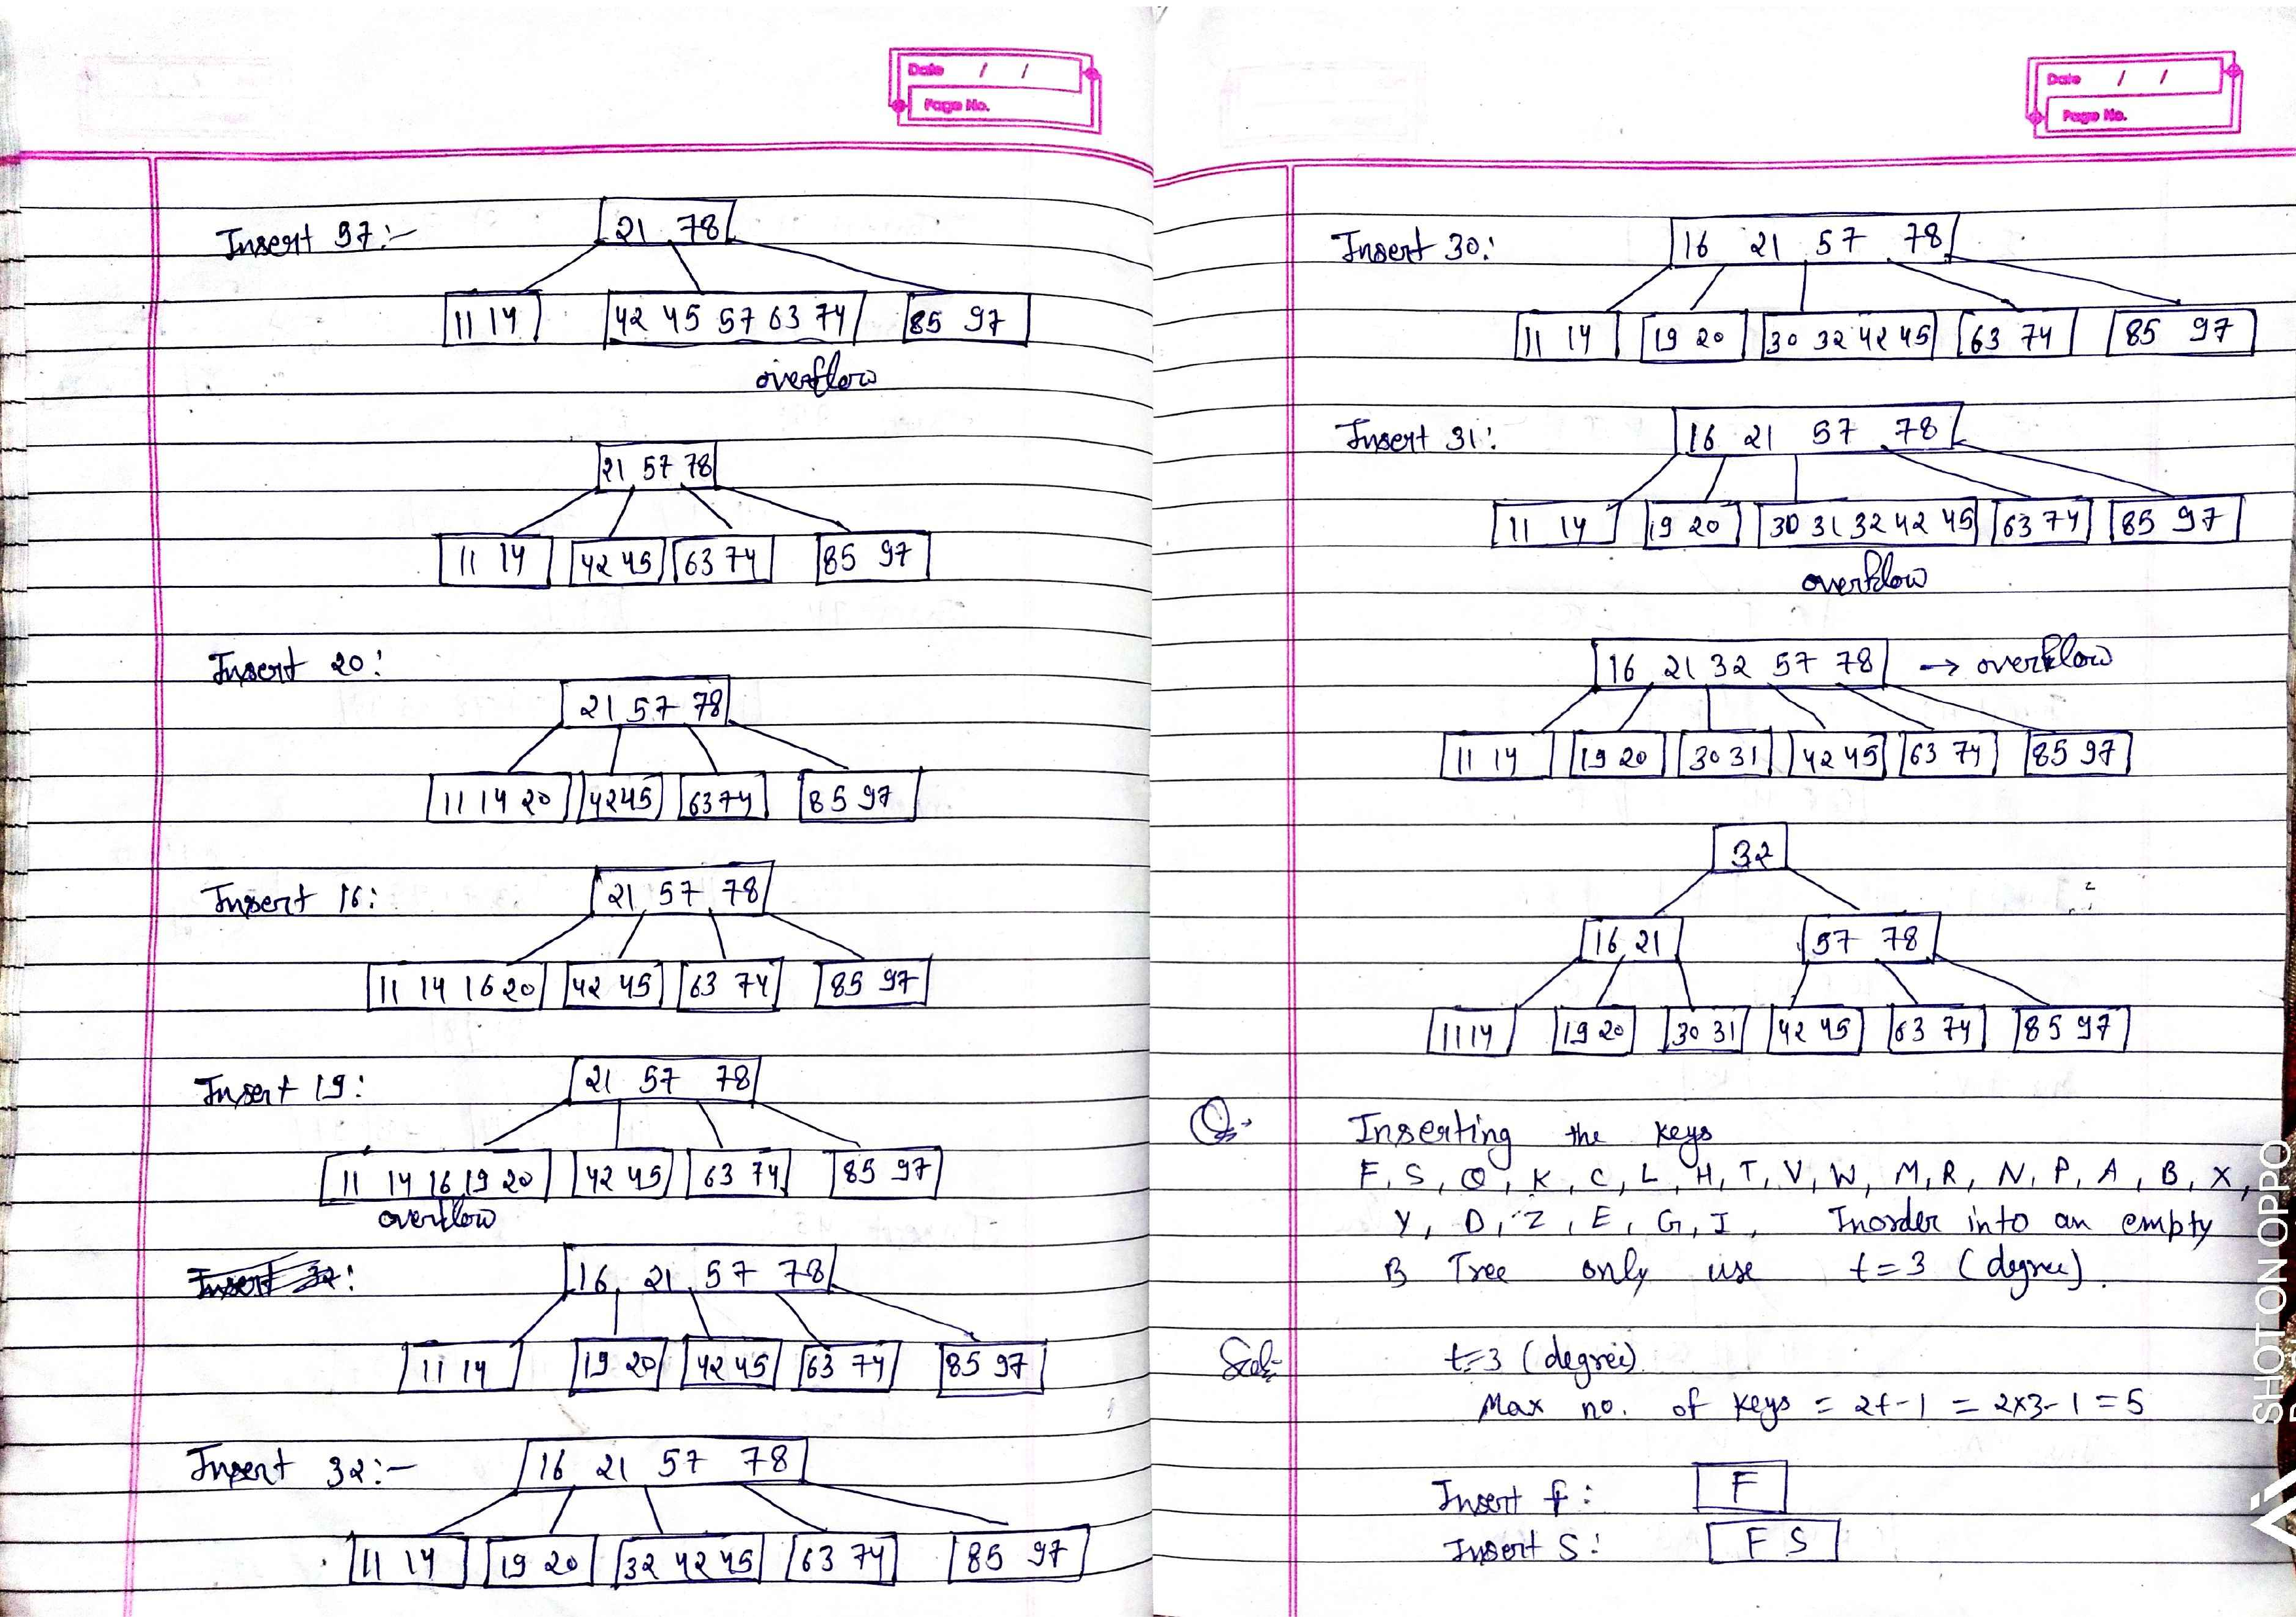 Date / /
Page No.
Insert 97:-
21 78
11 14 42 45 57 63 74 85 97
overflow
21 57 78
11 14 42 45 63 74 85 97
Insert 20:
21 57 78
11 14 20 42 45 63 74 85 97
Insert 16:
21 57 78
11 14 16 20 42 45 63 74 85 97
Insert 19:
21 57 78
11 14 16 19 20 42 45 63 74 85 97
overflow
Insert 32:
16 21 57 78
11 14 19 20 42 45 63 74 85 97
Insert 32:-
16 21 57 78
11 14 19 20 32 42 45 63 74 85 97
Date / /
Page No.
Insert 30:
16 21 57 78
11 14 19 20 30 32 42 45 63 74 85 97
Insert 31:
16 21 57 78
11 14 19 20 30 31 32 42 45 63 74 85 97
overflow
16 21 32 57 78 → overflow
11 14 19 20 30 31 42 45 63 74 85 97
32
16 21 57 78
11 14 19 20 30 31 42 45 63 74 85 97
Q. Inserting the keys
F, S, Q, K, C, L, H, T, V, W, M, R, N, P, A, B, X,
Y, D, Z, E, G, I, Inorder into an empty
B Tree only use t=3 (degree).
Sol- t=3 (degree)
Max no. of keys = 2t-1 = 2x3-1 = 5
Insert f: F
Insert S: F S
SHOT ON OPPO